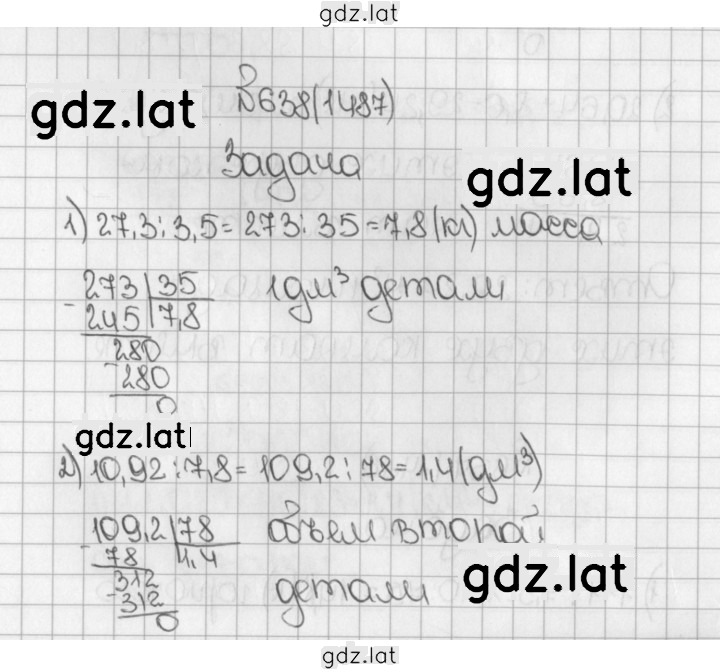 gdz.lat
№638(1487)
gdz.lat
Задача
gdz.lat
1) 27,3:3,5=273:35=7,8(кг) масса
1дм³ детали
273 35
- 245 7,8
280
- 280
0
gdz.lat
2) 10,92:7,8=109,2:78=1,4(дм³)
объем второй
109,2 78
- 78 1,4
312
- 312
0
gdz.lat
детали
gdz.lat